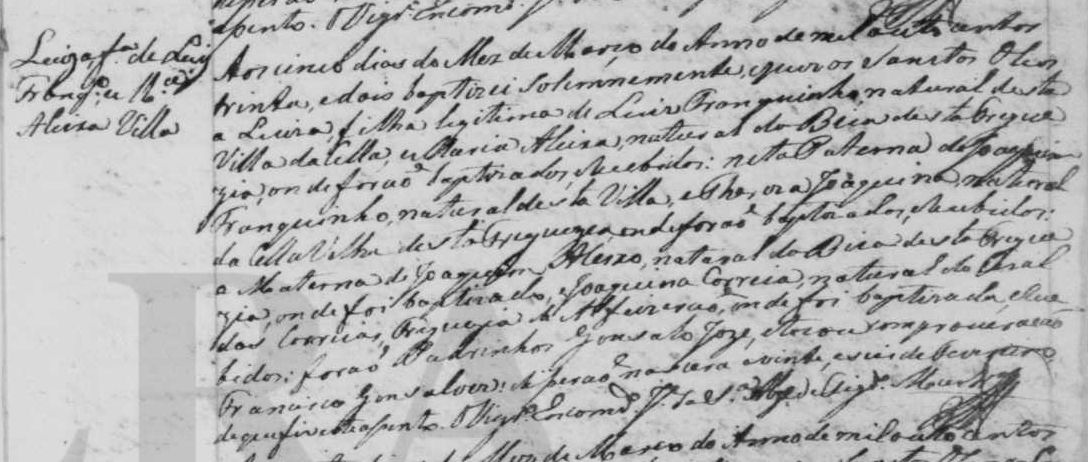 apento. O Vigr.º Encom.º
Luiza f.ª de Luiz
Franq.º e M.ª
Aleixa Villa
Aos cinco dias do Mez de Março do Anno de mil outo centos
trinta, e dois baptizei solemnemente, e puz os Santos Oleos
a Luiza, filha legitima de Luiz Franquinho, natural desta
Villa da Cella, e Maria Aleixa, natural do Bica desta Fregue
zia, onde foraõ baptizados, e recebidos: neta Paterna de Joaquim
Franquinho, natural desta Villa, e Thereza Joaquina, natural
da Cella Velha desta Freguezia, onde foraõ baptizados, e recebidos:
e Materna de Joaquim Aleixo, natural do Bica desta Fregue
zia, onde foi baptizado, e Joaquina Correia, natural do Cazal
das Correias, Freguezia de Alfeizeraõ, onde foi baptizada, e rece
bidos: foraõ Padrinhos Gonsalo Joze, e tocou com procuraçaõ
Francisco Gonsalves: nascera a vinte, e seis de Fevereiro
de que fiz este apento. O Vigr.º Encom.º
Mez de Março do Anno de mil outo centos